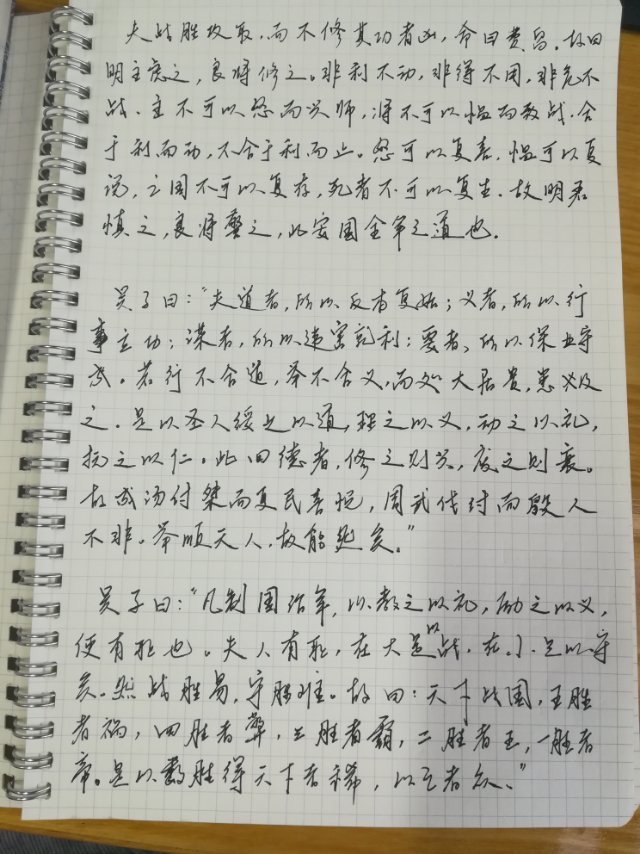 夫战胜攻取，而不修其功者凶，命曰费留。故曰
明主虑之，良将修之。非利不动，非得不用，非危不
战。主不可以怒而兴师，将不可以愠而致战。合
于利而动，不合于利而止。怒可以复喜，愠可以复
说，亡国不可以复存，死者不可以复生。故明君
慎之，良将警之，此安国全军之道也。
吴子曰：“夫道者，所以反本复始；义者，所以行
事立功；谋者，所以违害就利；要者，所以保业守
成。若行不合道，举不合义，而处大居贵，患必及
之。是以圣人绥之以道，理之以义，动之以礼，
抚之以仁。此四德者，修之则兴，废之则衰。
故成汤讨桀而夏民喜悦，周武伐纣而殷人
不非。举顺天人，故能然矣。”
吴子曰：“凡制国治军，必教之以礼，励之以义，
使有耻也。夫人有耻，在大足以战，在小足以守
矣。然战胜易，守胜难。故曰：天下战国，五胜
者祸，四胜者弊，三胜者霸，二胜者王，一胜者
帝。是以数胜得天下者稀，以亡者众。”